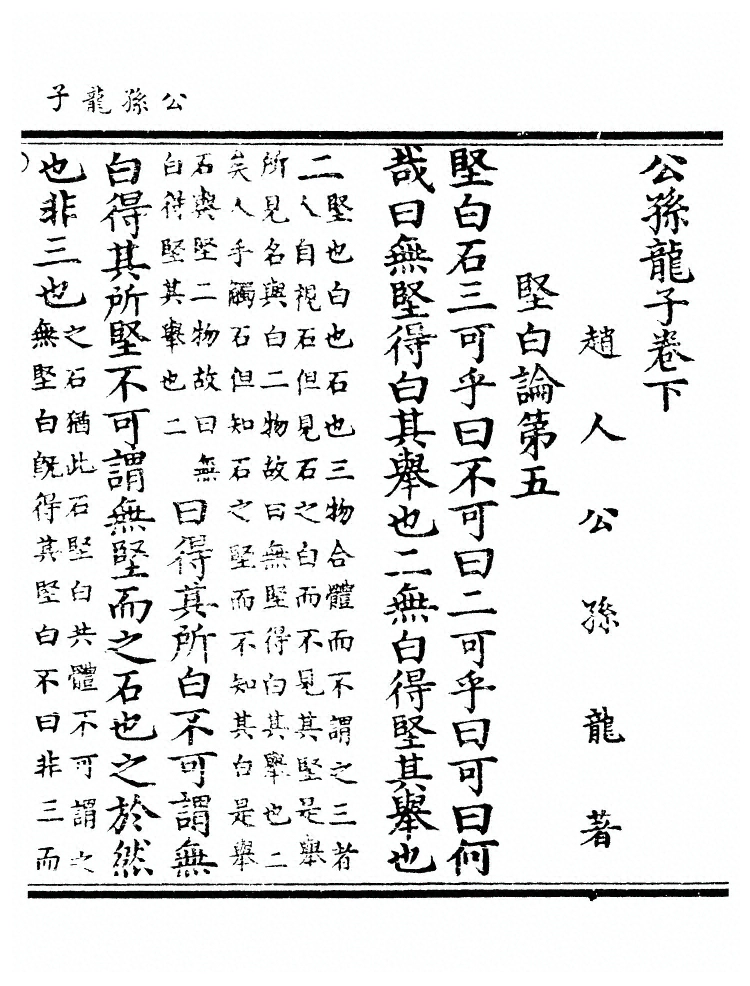 公孫龍子
公孫龍子卷下
趙人公孫龍著
堅白論第五
堅白石三可乎曰不可曰二可乎曰可曰何
哉曰無堅得白其舉也二無白得堅其舉也
二
堅也白也石也三物合體而不謂之三者
人自視石但見石之白而不見其堅是舉
所見名與白二物故曰無堅得白其舉也二
矣人手觸石但知石之堅而不知其白是舉
石與堅二物故曰無
白得堅其舉也二
曰得其所白不可謂無
白得其所堅不可謂無堅而之石也之於然
也非三也
之石猶此石堅白共體不可謂之
無堅白旣得其堅白不曰非三而